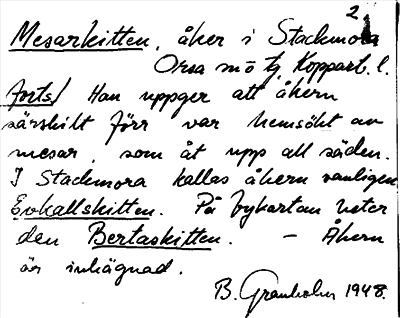 2.
Mesarkitten, åker i Stackmora
Orsa sn o tj. Kopparb. l.
forts/ Han uppger att åkern
särskilt förr var hemsökt av
mesar, som åt upp all säden.
I Stackmora kallas åkern vanligen
Erkallskitten. På bykartan heter
den Bertaskitten. - Åkern
är inhägnad.
B. Granholm 1948.